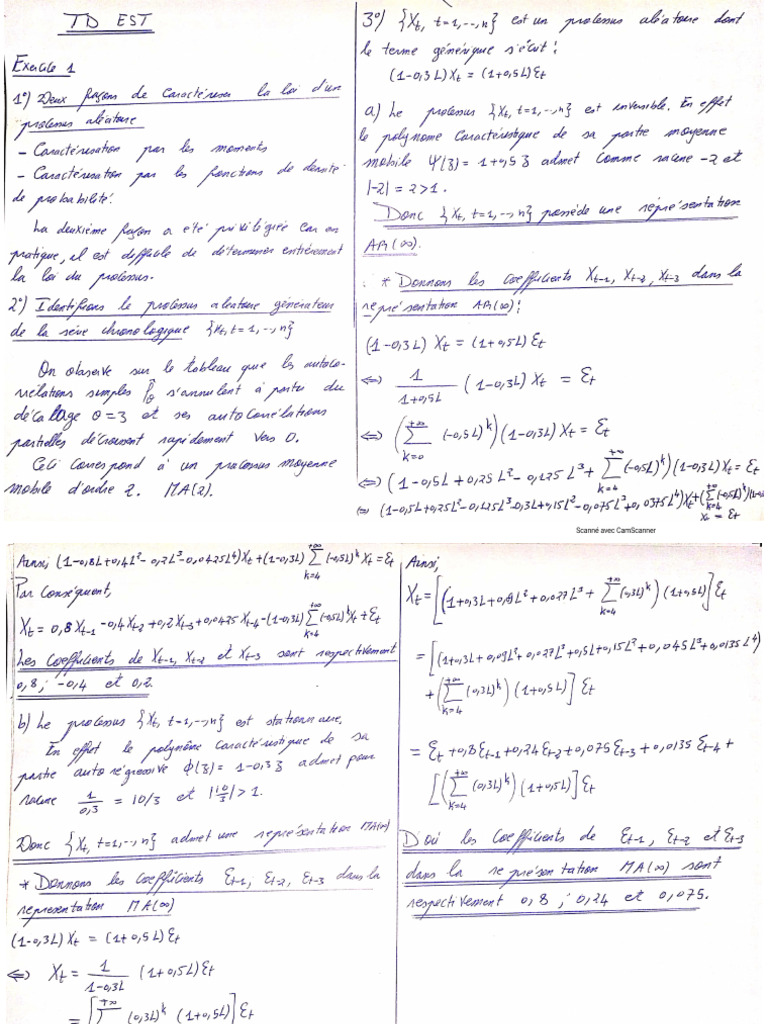 TD EST
Exercice 1
1°) Deux façons de caractériser la loi d'un
processus aléatoire
- Caractérisation par les moments
- Caractérisation par les fonctions de densité
de probabilité.
La deuxième façon a été privilégiée car en
pratique, il est difficile de déterminer entièrement
la loi du processus.
2°) Identifions le processus aléatoire générateur
de la série chronologique {Xt, t=1,--,n}
On observe sur le tableau que les autoco-
rrélations simples ρ̂θ s'annulent à partir du
décalage θ=3 et ses autocorrélations
partielles décroissent rapidement vers 0.
Ceci correspond à un processus moyenne
mobile d'ordre 2. MA(2).
3°) {Xt, t=1,--,n} est un processus aléatoire dont
le terme générique s'écrit:
(1-0,3L)Xt = (1+0,5L)Ɛt
a) Le processus {Xt, t=1,--,n} est inversible. En effet
le polynome caractéristique de sa partie moyenne
mobile Ψ(z) = 1+0,5z admet comme racine -2 et
|-2| = 2>1.
Donc {Xt, t=1,--,n} possède une représentation
AR(∞).
* Donnons les coefficients Xt-1, Xt-2, Xt-3 dans la
représentation AR(∞):
(1-0,3L) Xt = (1+0,5L)Ɛt
⇔ 1/(1+0,5L) (1-0,3L)Xt = Ɛt
⇔ (∑_{k=0}^{+∞} (-0,5L)^k)(1-0,3L)Xt = Ɛt
⇔ (1-0,5L+0,25L²-0,125L³+∑_{k=4}^{+∞}(-0,5L)^k)(1-0,3L)Xt=Ɛt
⇔ (1-0,5L+0,25L²-0,125L³-0,3L+0,15L²-0,075L³+0,0375L⁴)Xt+(∑_{k=4}^{+∞}(-0,5L)^k)(1-0,3L)
Xt = Ɛt
Scanné avec CamScanner
Ainsi, (1-0,8L+0,4L²-0,2L³-0,0425L⁴)Xt+(1-0,3L)∑_{k=4}^{+∞}(-0,5L)^k Xt=Ɛt
Par Conséquent,
Xt = 0,8Xt-1-0,4Xt-2+0,2Xt-3+0,0425Xt-4-(1-0,3L)∑_{k=4}^{+∞}(-0,5L)^k Xt+Ɛt
Les coefficients de Xt-1, Xt-2 et Xt-3 sont respectivement
0,8; -0,4 et 0,2.
b) Le processus {Xt, t=1,--,n} est stationnaire.
En effet le polynôme caractéristique de sa
partie autorégressive Φ(z) = 1-0,3z admet pour
racine 1/0,3 = 10/3 et |10/3|>1.
Donc {Xt, t=1,--,n} admet une représentation MA(∞)
* Donnons les coefficients Ɛt-1; Ɛt-2, Ɛt-3 dans la
représentation MA(∞)
(1-0,3L)Xt = (1+0,5L)Ɛt
⇔ Xt = 1/(1-0,3L) (1+0,5L)Ɛt
= [∑^{+∞} (0,3L)^k (1+0,5L)]Ɛt
Ainsi,
Xt = [(1+0,3L+0,09L²+0,027L³+∑_{k=4}^{+∞}(0,3L)^k)(1+0,5L)]Ɛt
= [(1+0,3L+0,09L²+0,027L³+0,5L+0,15L²+0,045L³+0,0135L⁴)
+(∑_{k=4}^{+∞}(0,3L)^k)(1+0,5L)]Ɛt
= Ɛt+0,8Ɛt-1+0,24Ɛt-2+0,075Ɛt-3+0,0135Ɛt-4+
[(∑_{k=4}^{+∞}(0,3L)^k)(1+0,5L)]Ɛt
D'où les coefficients de Ɛt-1, Ɛt-2 et Ɛt-3
dans la représentation MA(∞) sont
respectivement 0,8; 0,24 et 0,075.